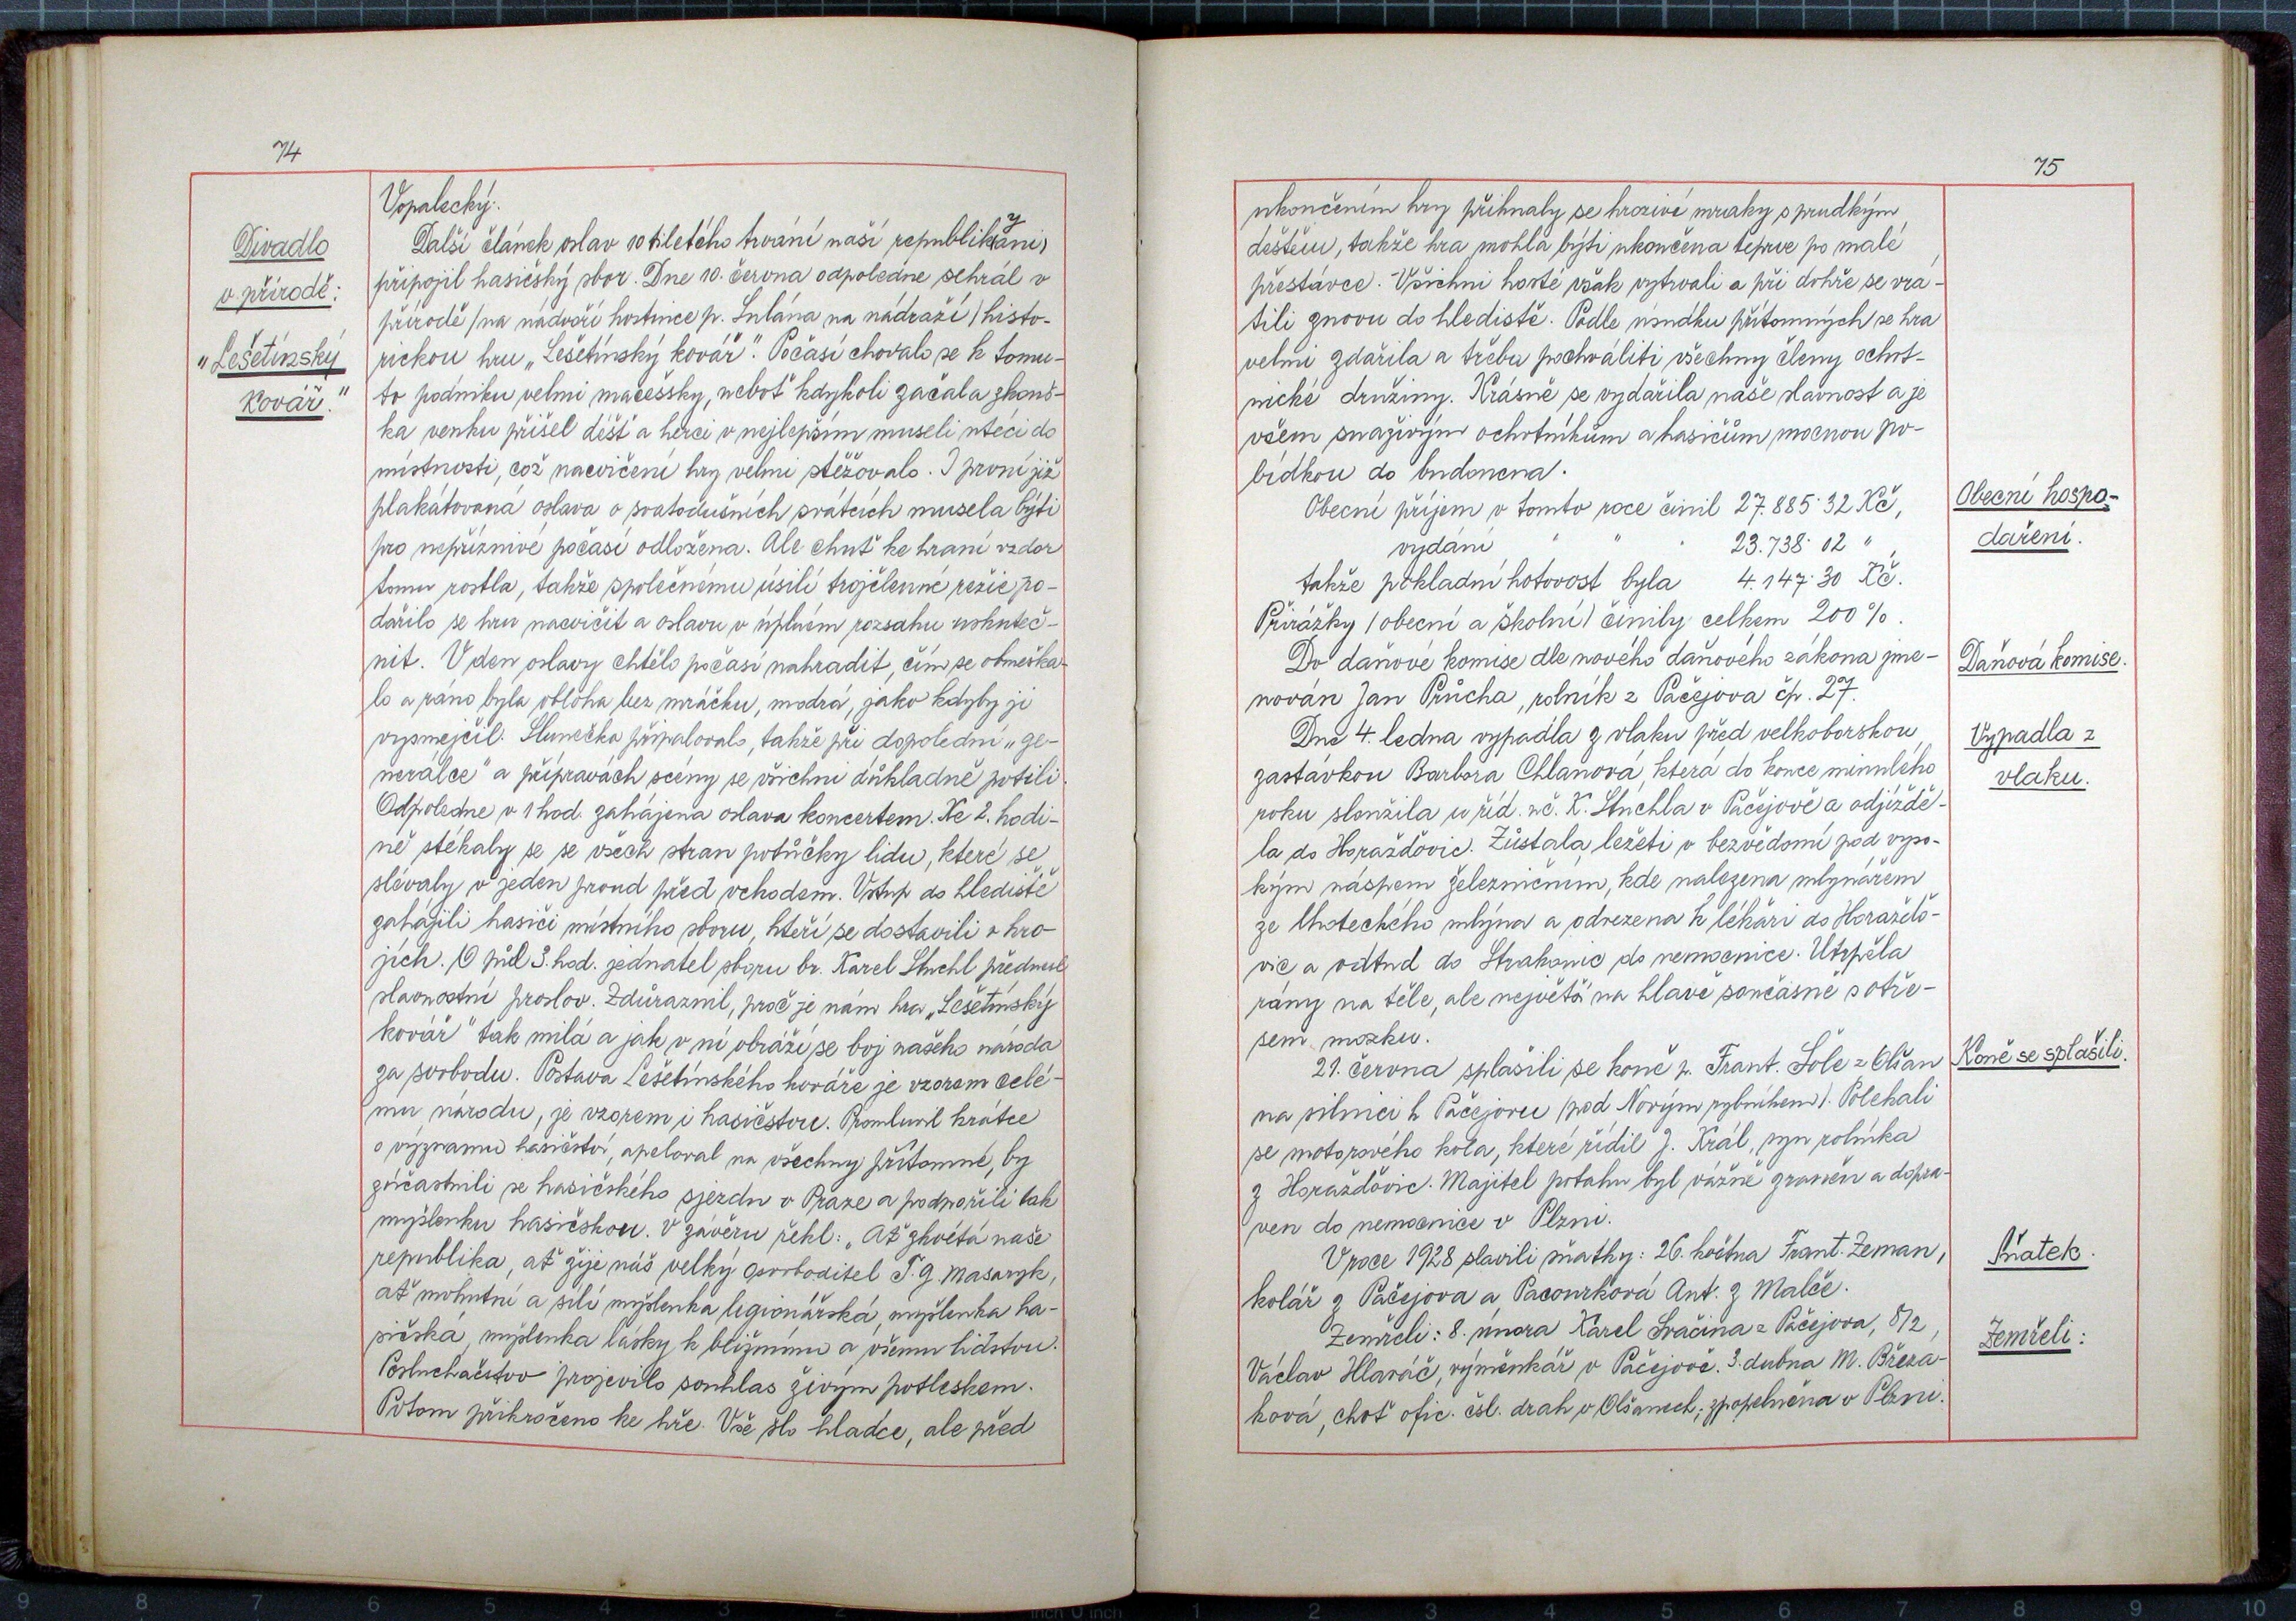 74
Divadlo
v přírodě:
"Lešetínský
kovář."
Vopalecký.
Další článek oslav 10tiletého trvání naší republiky
připojil hasičský sbor. Dne 10. června odpoledne sehrál v
přírodě (na nádvoří hostince p. Šulána na nádraží) histo-
rickou hru „Lešetínský kovář". Počasí chovalo se k tomu-
to podniku velmi macešsky, neboť kdykoli začala zkouš-
ka venku přišel déšť a herci v nejlepším museli utéci do
místnosti, což nacvičení hry velmi stěžovalo. I první již
plakátovaná oslava o svatodušních svátcích musela býti
pro nepříznivé počasí odložena. Ale chuť ke hraní vzdor
tomu rostla, takže společnému úsilí trojčlenné režie po-
dařilo se hru nacvičit a oslavu v úplném rozsahu uskuteč-
nit. V den oslavy chtělo počasí nahradit, čím se obmeška-
lo a ráno byla obloha bez mráčku, modrá, jako kdyby ji
vysmejčil. Slunečko připalovalo, takže při dopolední „ge-
nerálce" a přípravách scény se všichni důkladně potili.
Odpoledne v 1 hod. zahájena oslava koncertem. Ke 2. hodi-
ně stékaly se se všech stran potůčky lidu, které se
slévaly v jeden proud před vchodem. Vstup do hlediště
zahájili hasiči místního sboru, kteří se dostavili v kro-
jích. O půl 3. hod. jednatel sboru br. Karel Stuchl přednesl
slavnostní proslov. Zdůraznil, proč je nám hra „Lešetínský
kovář" tak milá a jak v ní obráží se boj našeho národa
za svobodu. Postava Lešetínského kováře je vzorem celé-
mu národu, je vzorem i hasičstvu. Promluvil krátce
o významu hasičství, apeloval na všechny přítomné, by
zúčastnili se hasičského sjezdu v Praze a podpořili tak
myšlenku hasičskou. V závěru řekl: „Ať zkvétá naše
republika, ať žije náš velký osvoboditel T. G. Masaryk,
ať mohutní a sílí myšlenka legionářská, myšlenka ha-
sičská, myšlenka lásky k bližnímu a všemu lidstvu.
Posluchačstvo projevilo souhlas živým potleskem.
Potom přikročeno ke hře. Vše šlo hladce, ale před
75
ukončením hry přihnaly se hrozivé mraky s prudkým
deštěm, takže hra mohla býti ukončena teprve po malé
přestávce. Všichni hosté však vytrvali a při dohře se vrá-
tili znovu do hlediště. Podle úsudku přítomných se hra
velmi zdařila a třeba pochváliti všechny členy ochot-
nické družiny. Krásně se vydařila naše slavnost a je
všem snaživým ochotníkům a hasičům mocnou po-
bídkou do budoucna.
Obecní příjem v tomto roce činil 27.885·32 Kč,
vydání " " " 23.738·02 ",
takže pokladní hotovost byla 4.147·30 Kč.
Přirážky (obecní a školní) činily celkem 200%.
Obecní hospo-
daření.
Do daňové komise dle nového daňového zákona jme-
nován Jan Průcha, rolník z Pačejova čp. 27.
Daňová komise.
Dne 4. ledna vypadla z vlaku před velkoborskou
zastávkou Barbora Chlanová, která do konce minulého
roku sloužila u říd. uč. K. Stuchla v Pačejově a odjížděl-
la do Horažďovic. Zůstala ležeti v bezvědomí pod vyso-
kým náspem železničním, kde nalezena mlynářem
ze lhoteckého mlýna a odvezena k lékaři do Horažďo-
vic a odtud do Strakonic do nemocnice. Utrpěla
rány na těle, ale největší na hlavě současně s otře-
sem mozku.
Vypadla z
vlaku.
21. června splašili se koně p. Frant. Šole z Olšan
na silnici k Pačejovu (pod Novým rybníkem). Polekali
se motorového kola, které řídil J. Král, syn rolníka
z Horažďovic. Majitel potahu byl vážně zraněn a dopra-
ven do nemocnice v Plzni.
Koně se splašili.
V roce 1928 slavili sňatky: 26. května Frant. Zeman,
kolář z Pačejova a Pacourková Ant. z Malče.
Sňatek.
Zemřeli: 8. února Karel Svačina z Pačejova, 8/2,
Václav Hlaváč, výměnkář v Pačejově. 3. dubna M. Březa-
ková, choť ofic. čsl. drah v Olšanech; zpopelněna v Plzni.
Zemřeli: